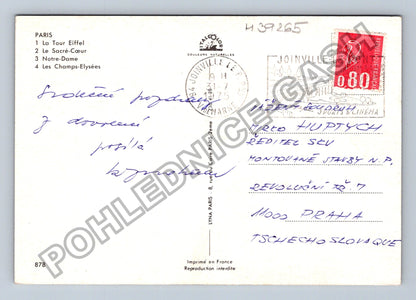 439265
PARIS
1 La Tour Eiffel
2 Le Sacré-Cœur
3 Notre-Dame
4 Les Champs-Elysées
COULEURS NATURELLES
94 JOINVILLE LE P
JOINVILLE
SPORTS CINEMA
0,80
Srdečné pozdravy
z dovolené
posílá
VÁŽENÝ SOUDRUH
HUPTYCH
ŘEDITEL SSV
MONTOVANÉ STAVBY N.P.
REVOLUČNÍ TŘ 7
11000 PRAHA
TSCHECHOSLOVAQUIE
LYNA PARIS
878
Imprimé en France
Reproduction interdite
POHLEDNICE-GASH